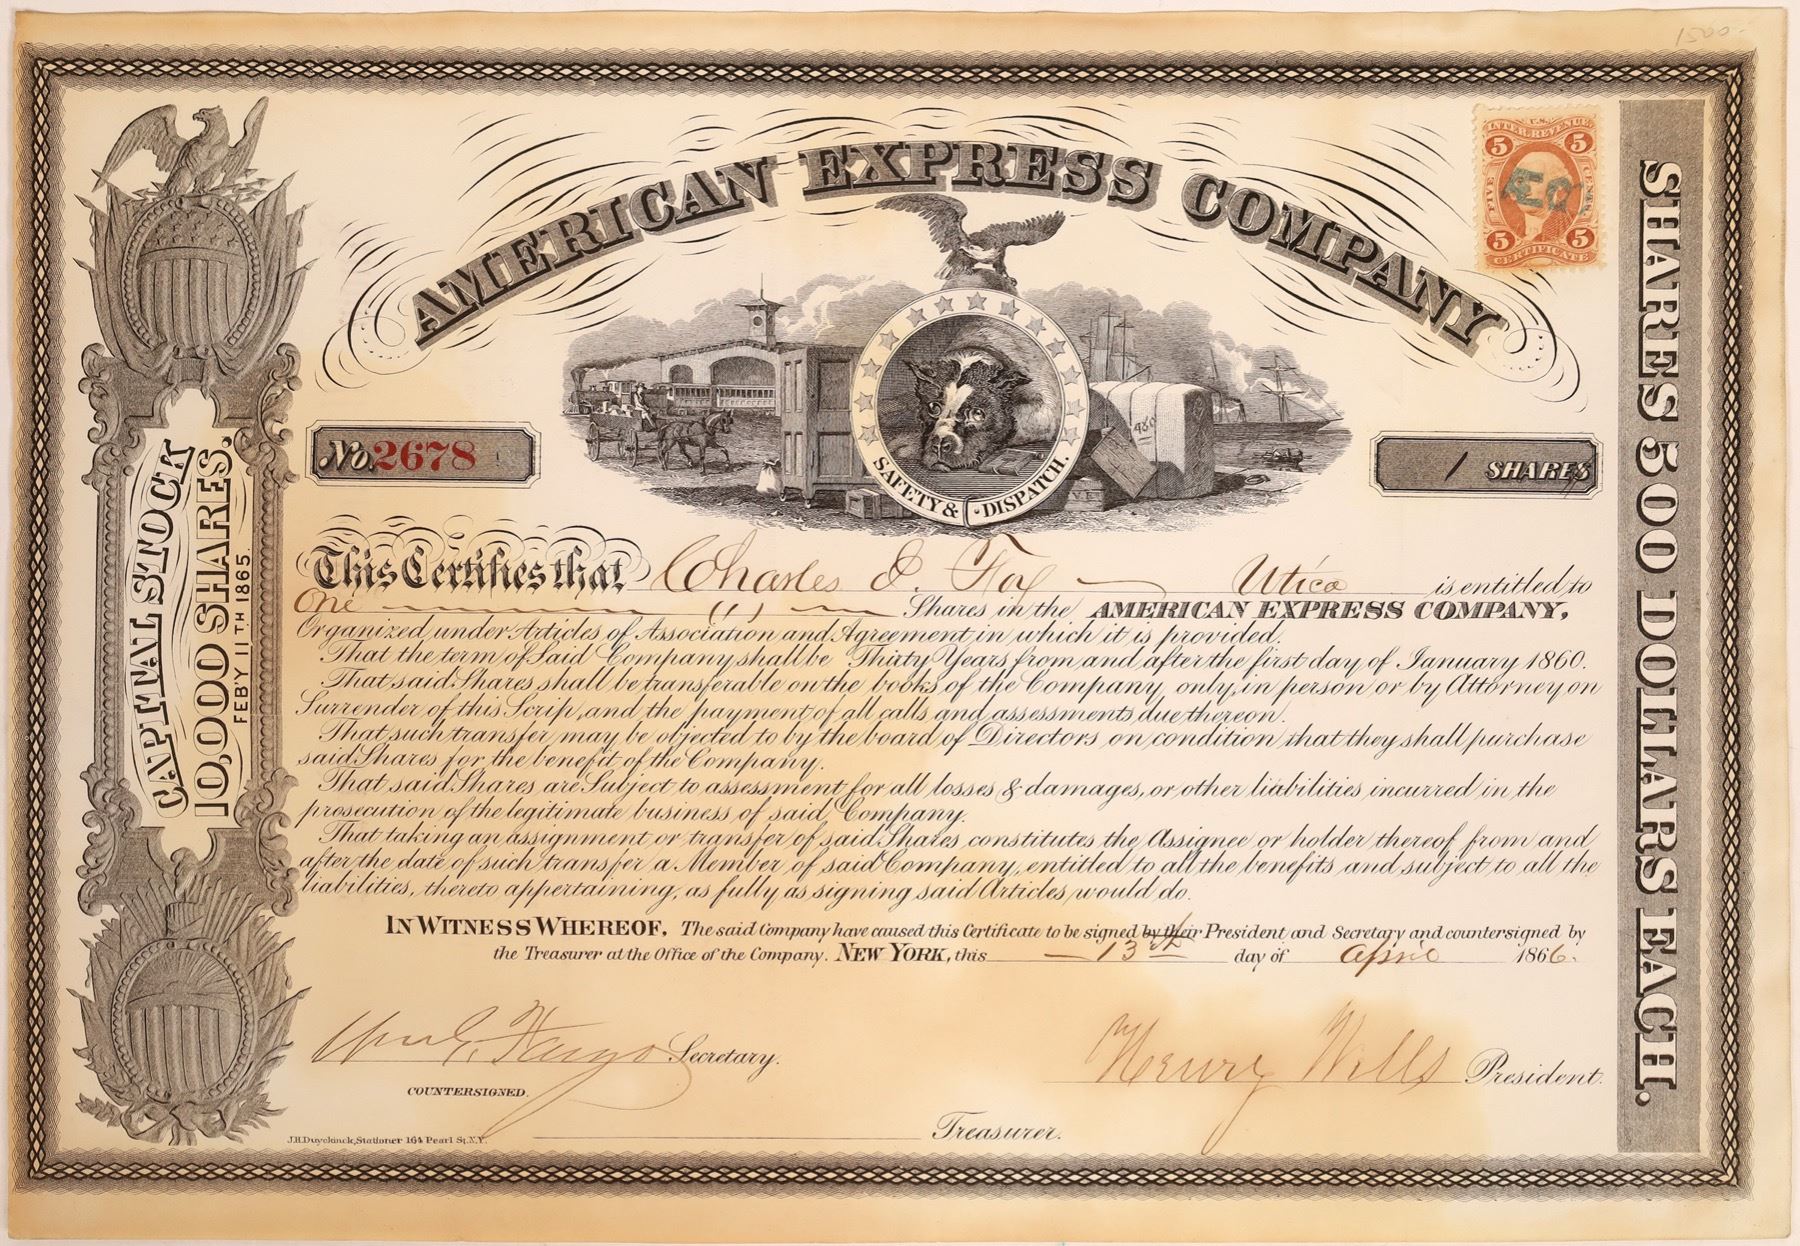 1500-
AMERICAN EXPRESS COMPANY
U.S.
INTER. REVENUE
5 5
FIVE CENTS
5 5
CERTIFICATE
SHARES 500 DOLLARS EACH.
CAPITAL STOCK
10,000 SHARES.
FEB'Y 11TH 1865.
No. 2678
480
SAFETY & DISPATCH.
1 SHARES
This Certifies that Charles E. Fox Utica is entitled to
One (1) Shares in the AMERICAN EXPRESS COMPANY,
Organized under Articles of Association and Agreement in which it is provided.
That the term of Said Company shall be Thirty Years from and after the first day of January 1860.
That said Shares shall be transferable on the books of the Company, only, in person or by Attorney on
Surrender of this Scrip, and the payment of all calls and assessments due thereon.
That such transfer may be objected to by the board of Directors on condition that they shall purchase
said Shares for the benefit of the Company.
That said Shares are Subject to assessment for all losses & damages, or other liabilities incurred in the
prosecution of the legitimate business of said Company.
That taking an assignment or transfer of said Shares constitutes the Assignee or holder thereof from and
after the date of such transfer a Member of said Company, entitled to all the benefits and subject to all the
liabilities, thereto appertaining, as fully as signing said Articles would do.
IN WITNESS WHEREOF, The said Company have caused this Certificate to be signed by their President and Secretary and countersigned by
the Treasurer at the Office of the Company. NEW YORK, this 13th day of April 1866.
Wm G. Fargo Secretary.
Henry Wells President.
COUNTERSIGNED.
Treasurer.
J.H. Duyckinck, Stationer 164 Pearl St. N.Y.